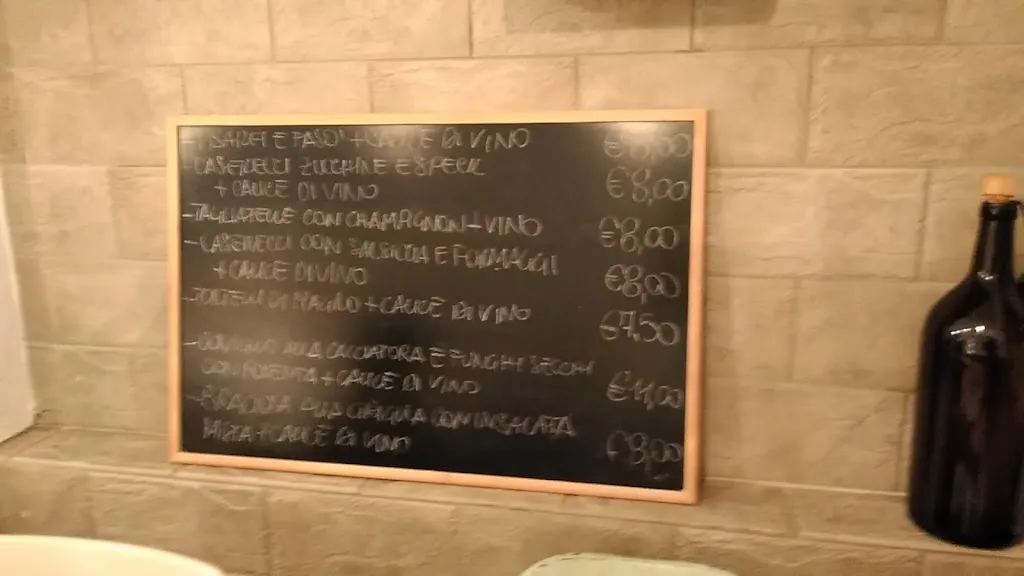 E FASOI + CALICE DI VINO
- CASERECCI ZUCCHINE E SPECK €8,00
+ CALICE DI VINO
- TAGLIATELLE CON CHAMPAGNON + VINO €8,00
- CASERECCI CON SALSICCIA E FORMAGGI €8,00
+ CALICE DI VINO
- DI + CALICE DI VINO €7,50
- CONIGLIO ALLA CACCIATORA E FUNGHI SECCHI €11,00
CON POLENTA + CALICE DI VINO
- ALLA CON INSALATA €9,00
MISTA + CALICE DI VINO